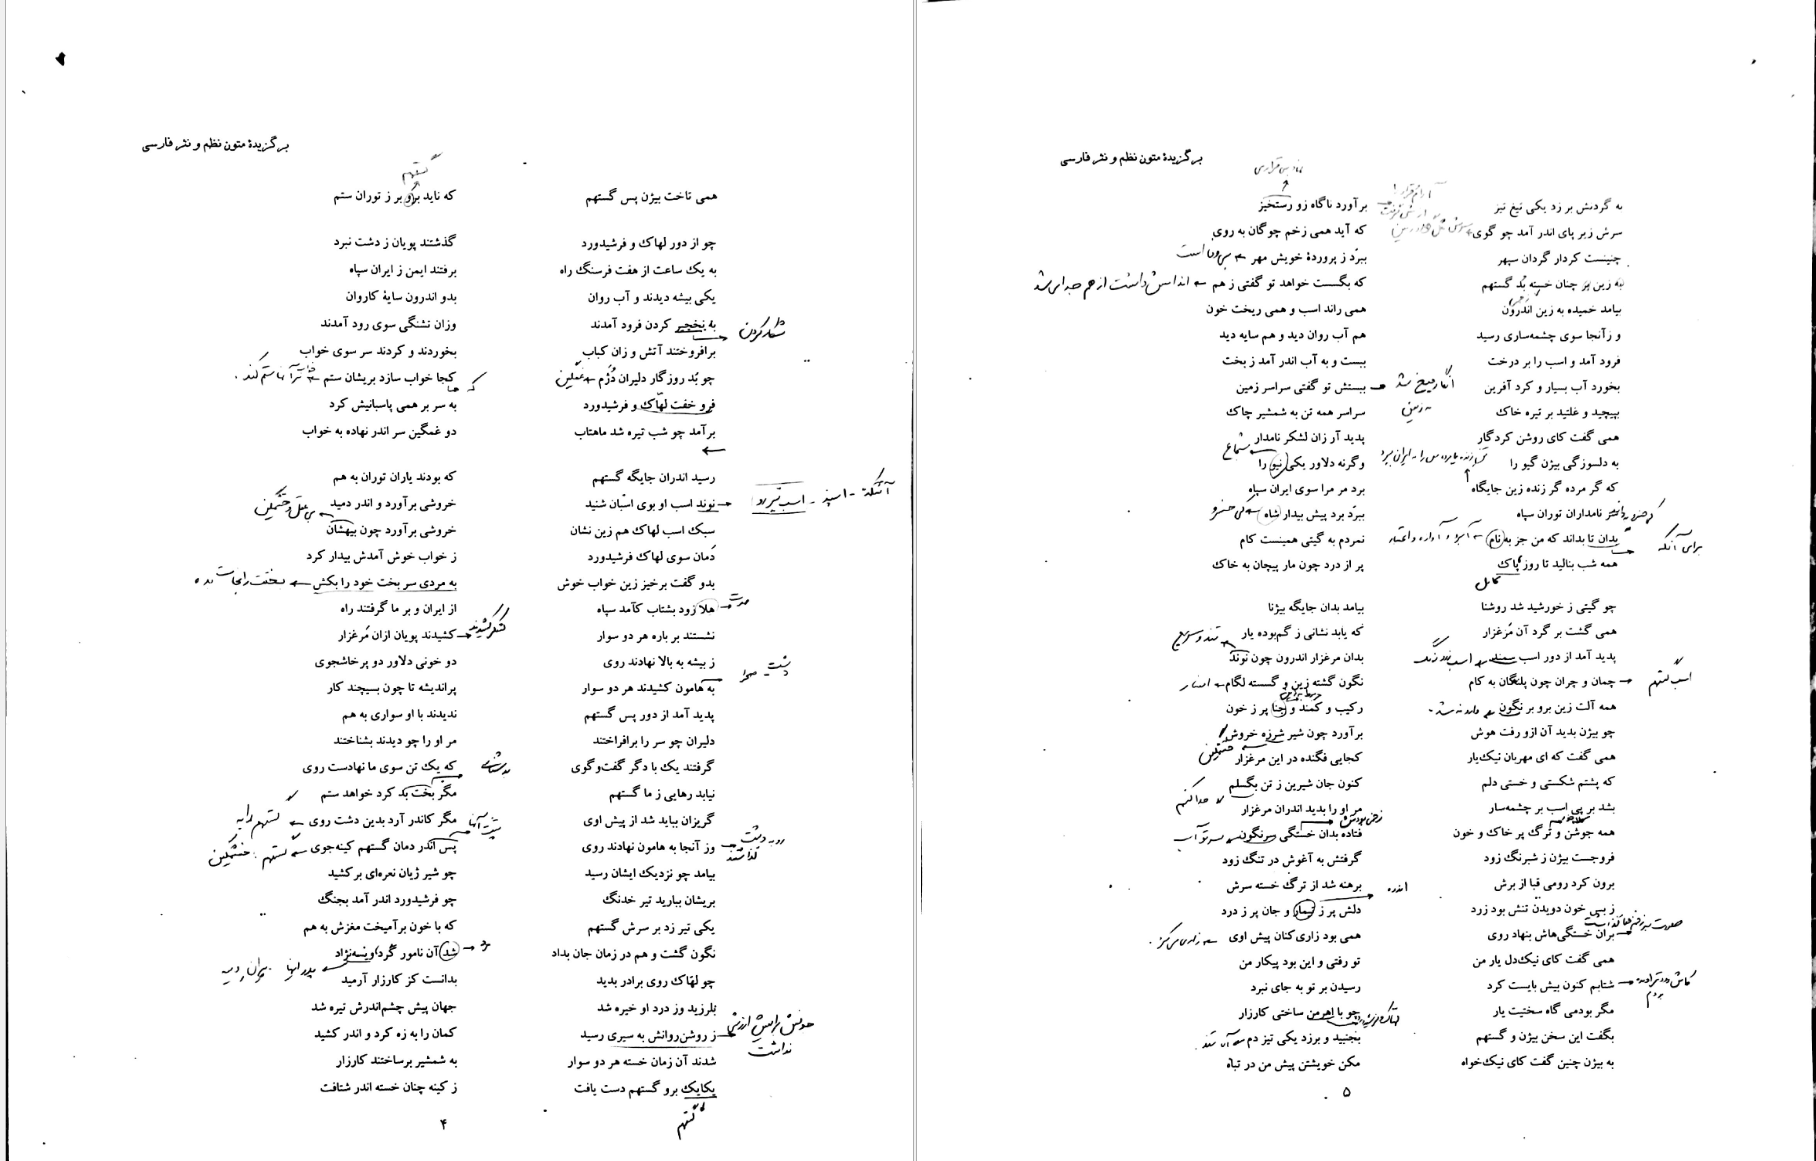 برگزیدهٔ متون نظم و نثر فارسی
گستهم
همی تاخت بیژن پس گستهم که ناید برو بر ز توران ستم
چو از دور لهاک و فرشیدورد گذشتند پویان ز دشت نبرد
به یک ساعت از هفت فرسنگ راه برفتند ایمن ز ایران سپاه
یکی بیشه دیدند و آب روان بدو اندرون سایهٔ کاروان
شکار کردن به نخجیر کردن فرود آمدند وزان تشنگی سوی رود آمدند
برافروختند آتش و زان کباب بخوردند و کردند سر سوی خواب
چو بُد روزگار دلیران دُژم غمگین کجا خواب سازد بریشان ستم
فرو خفت لهّاک و فرشیدورد به سر بر همی پاسبانیش کرد
برآمد چو شب تیره شد ماهتاب دو غمگین سر اندر نهاده به خواب
رسید اندران جایگه گستهم که بودند یاران توران به هم
نوند اسب او بوی اسبان شنید خروشی برآورد و اندر دمید
سبک اسب لهاک هم زین نشان خروشی برآورد چون بیهشان
دَمان سوی لهاک فرشیدورد ز خواب خوش آمدش بیدار کرد
بدو گفت برخیز زین خواب خوش به مردی سر بخت خود را بکش
هلا زود بشتاب کآمد سپاه از ایران و بر ما گرفتند راه
نشستند بر باره هر دو سوار کشیدند پویان ازان مَرغزار
ز بیشه به بالا نهادند روی دو خونی دلاور دو پرخاشجوی
دشت صحرا به هامون کشیدند هر دو سوار پراندیشه تا چون بسیچند کار
پدید آمد از دور پس گستهم ندیدند با او سواری به هم
دلیران چو سر را برافراختند مر او را چو دیدند بشناختند
گرفتند یک با دگر گفت‌وگوی که یک تن سوی ما نهادست روی
نیابد رهایی ز ما گستهم مگر بخت بد کرد خواهد ستم
گریزان بباید شد از پیش اوی مگر کاندر آرد بدین دشت روی
وز آنجا به هامون نهادند روی پس اندر دمان گستهم کینه‌جوی گستهم خشمگین
بیامد چو نزدیک ایشان رسید چو شیر ژیان نعره‌ای برکشید
بریشان ببارید تیر خدنگ چو فرشیدورد اندر آمد بجنگ
یکی تیر زد بر سرش گستهم که با خون برآمیخت مغزش به هم
نگون گشت و هم در زمان جان بداد شد آن نامور گُرد ویسه‌نژاد
چو لهّاک روی برادر بدید بدانست کز کارزار آرمید
بلرزید وز درد او خیره شد جهان پیش چشم‌اندرش تیره شد
ز روشن‌روانش به سیری رسید کمان را به زه کرد و اندر کشید
شدند آن زمان خسته هر دو سوار به شمشیر برساختند کارزار
یکایک برو گستهم دست یافت ز کینه چنان خسته اندر شتافت
گستهم
۴
برگزیدهٔ متون نظم و نثر فارسی
به گردنش بر زد یکی تیغ تیز برآورد ناگاه زو رستخیز
سرش زیر پای اندر آمد چو گوی که آید همی زخم چوگان به روی
چنینست کردار گردان سپهر ببرّد ز پروردهٔ خویش مهر
به زین بر چنان خسته بُد گستهم که بگسست خواهد تو گفتی ز هم
بیامد خمیده به زین اندرون همی راند اسب و همی ریخت خون
و زآنجا سوی چشمه‌ساری رسید هم آب روان دید و هم سایه دید
فرود آمد و اسب را بر درخت ببست و به آب اندر آمد ز بخت
بخورد آب بسیار و کرد آفرین ببستش تو گفتی سراسر زمین
بپیچید و غلتید بر تیره خاک سراسر همه تن به شمشیر چاک
همی گفت کای روشن کردگار پدید آر زان لشکر نامدار
شجاع
به دلسوزگی بیژن گیو را وگرنه دلاور یکی نیو را
که گر مرده گر زنده زین جایگاه برد مر مرا سوی ایران سپاه
سر نامداران توران سپاه ببرّد برد پیش بیدار شاه کی خسرو
برای آنکه بدان تا بداند که من جز به نام نمردم به گیتی همینست کام
همه شب بنالید تا روز پاک پر از درد چون مار پیچان به خاک
چو گیتی ز خورشید شد روشنا بیامد بدان جایگه بیژنا
همی گشت بر گرد آن مَرغزار که یابد نشانی ز گم‌بوده یار
پدید آمد از دور اسب سمند بدان مرغزار اندرون چون نوند
اسب گستهم چمان و چران چون پلنگان به کام نگون گشته زین و گسسته لگام
همه آلت زین برو بر نگون رکیب و کمند و جنا پر ز خون
چو بیژن بدید آن ازو رفت هوش برآورد چون شیر شرزه خروش
خشمگین
همی گفت که ای مهربان نیک‌یار کجایی فگنده در این مرغزار
که پشتم شکستی و خستی دلم کنون جان شیرین ز تن بگسلم
جدا کنم
بشد بر پی اسب بر چشمه‌سار مر او را بدید اندران مرغزار
همه جوشن و تَرگ پر خاک و خون فتاده بدان خستگی سرنگون
فروجست بیژن ز شبرنگ زود گرفتش به آغوش در تنگ زود
برون کرد رومی قبا از برش برهنه شد از ترگ خسته سرش
ز بس خون دویدن تنش بود زرد دلش پر ز تیمار و جان پر ز درد
بران خستگی‌هاش بنهاد روی همی بود زاری‌کنان پیش اوی
همی گفت کای نیک‌دل یار من تو رفتی و این بود پیکار من
شتابم کنون بیش بایست کرد رسیدن بر تو به جای نبرد
مگر بودمی گاه سختیت یار چو با اهرمن ساختی کارزار
بگفت این سخن بیژن و گستهم بجنبید و برزد یکی تیز دم
به بیژن چنین گفت کای نیک‌خواه مکن خویشتن پیش من در تباه
۵